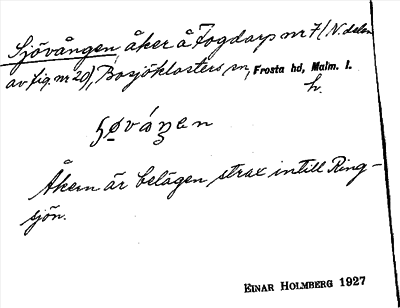 Sjövången åker å Fogdarp nr 7 (N. delen
av fig. nr 20), Bosjöklosters sn, Frosta hd, Malm. l.
h.
Åkern är belägen strax intill Ring-
sjön.
EINAR HOLMBERG 1927